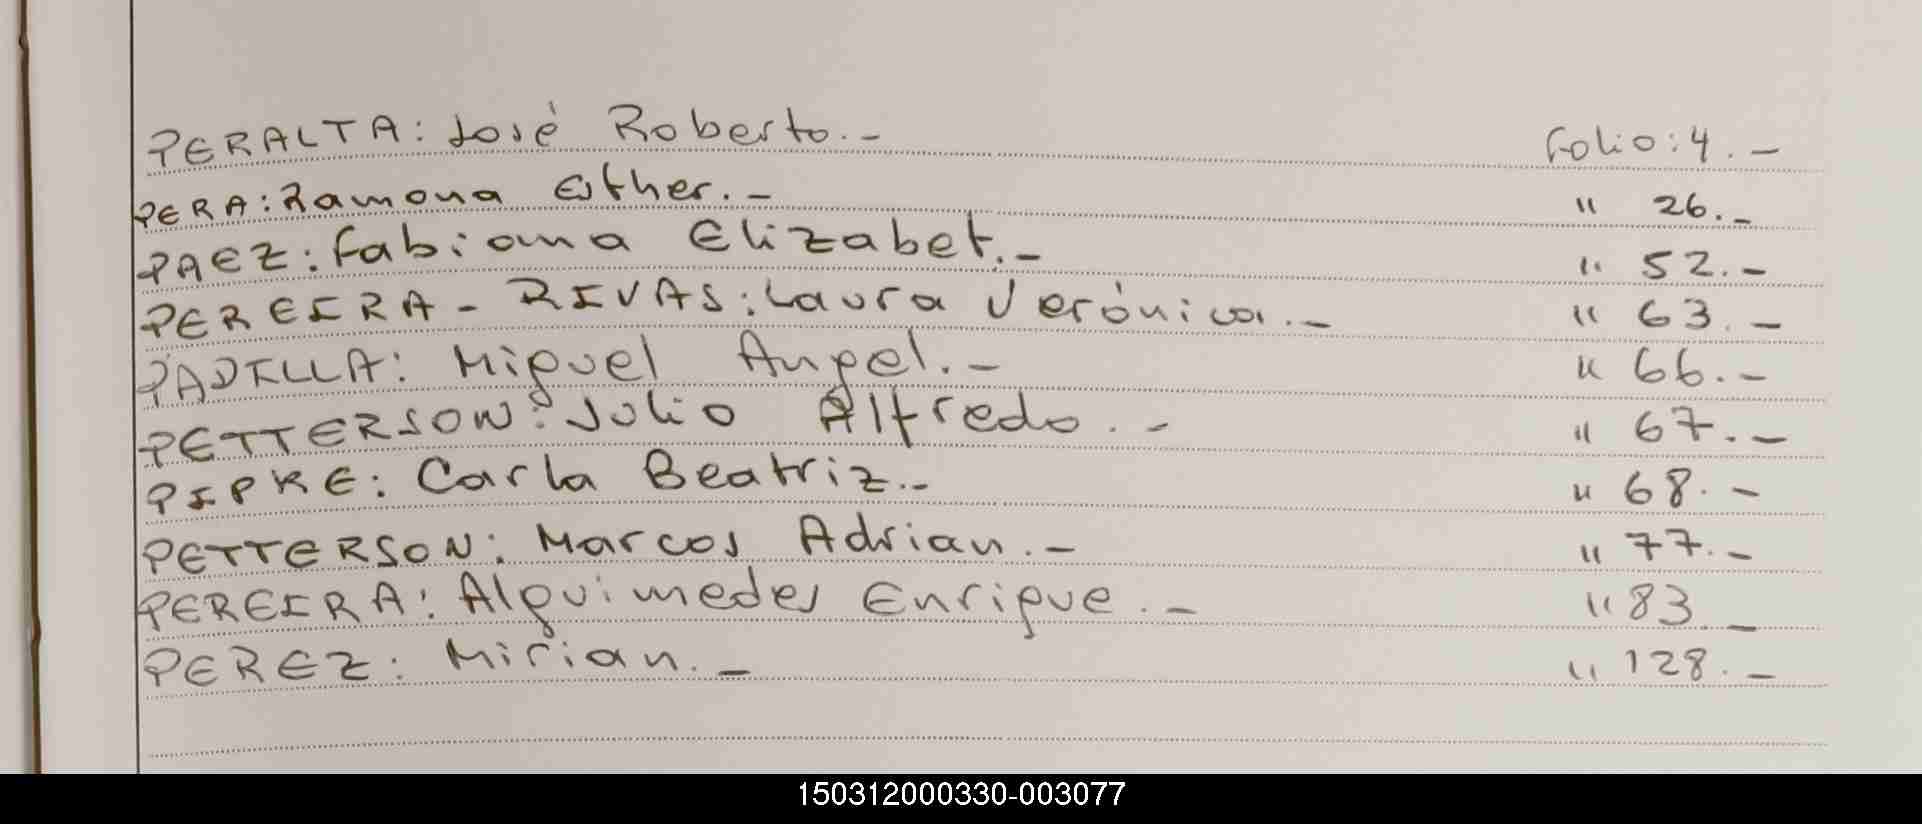 PERALTA: José Roberto.- Folio: 4.-
PERA: Ramona Esther.- " 26.-
PAEZ: Fabiana Elizabet.- " 52.-
PEREIRA - RIVAS: Laura Verónica.- " 63.-
PADILLA: Miguel Angel.- " 66.-
PETTERSON: Julio Alfredo.- " 67.-
PIPKE: Carla Beatriz.- " 68.-
PETTERSON: Marcos Adrian.- " 77.-
PEREIRA: Alquimedes Enrique.- " 83.-
PEREZ: Mirian.- " 128.-
150312000330-003077